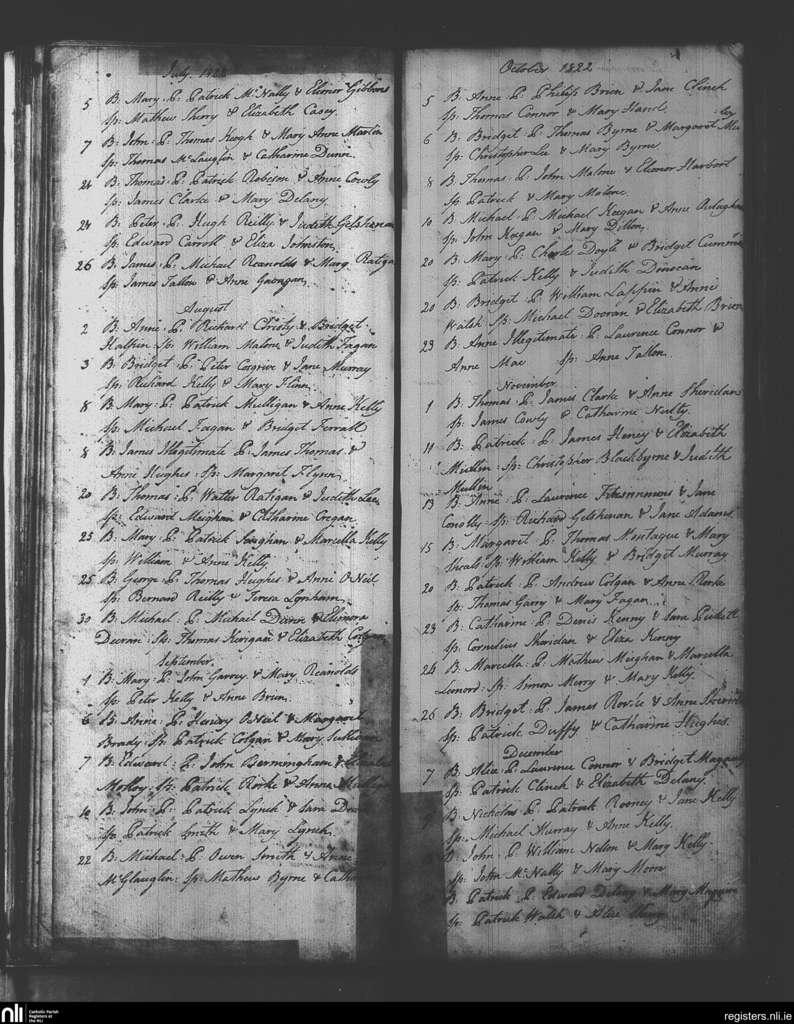 July 1822
5 B. Mary. P. Patrick McNally & Elenor Gibbons
Sp. Mathew Sherry & Elizabeth Casey.
7 B. John. P. Thomas Keogh & Mary Anne Martin
Sp. Thomas McLauglin & Catharine Dunn.
24 B. Thomas. P. Patrick Robeson & Anne Cowly
Sp. James Clarke & Mary Delany.
24 B. Peter. P. Hugh Reilly & Judith Gelshenan
Sp. Edward Carroll & Eliza Johnston.
26 B. James. P. Michael Reanolds & Marg Ratigan
Sp. James Tallon & Anne
August
2 B. Anne. P. Richard Christy & Bridget
Halpin Sp. William Malone & Judith Fagan
3 B. Bridget. P. Peter Cosgrive & Jane Murray
Sp. Richard Kelly & Mary Flinn.
8 B. Mary. P. Patrick Mulligan & Anne Kelly
Sp. Michael Keagan & Bridget Ferrall
8 B. James Illegitimate P. James Thomas &
Anne Hughes. Sp. Margaret Flynn.
20 B. Thomas. P. Walter Ratigan & Judith Lee
Sp. Edward Meighan & Catharine Cregan
23 B. Mary. P. Patrick & Marcella Kelly
Sp. William & Anne Kelly.
25 B. George. P. Thomas Hughes & Anne O Neil
Sp. Bernard Reilly & Teresa Lynham.
30 B. Michael. P. Michael & Elenora
Deeran. Sp. Thomas Kerigan & Elizabeth
September.
1 B. Mary. P. John Garvey & Mary Reanolds
Sp. Peter Kelly & Anne Brien.
6 B. Anne. P. Henery O Neil & Margaret
Brady Sp. Patrick Colgan & Mary
7 B. Edward. P. John Bermingham &
Molloy. Sp. Patrick Rorke & Anne
10 B. John. P. Patrick Lynch & Sara
Sp. Patrick Smith & Mary Lynch.
22 B. Michael. P. Owen Smith & Anne
McGlauglin. Sp. Mathew Byrne &
October 1822
5 B. Anne. P. Philip Brien & Jane Clinch
Sp. Thomas Connor & Mary Hand.
6 B. Bridget. P. Thomas Byrne & Margaret
Sp. Christopher Lee & Mary Byrne
8 B. Thomas. P. John Malone & Elenor Harbort
Sp. Patrick & Mary Malone.
10 B. Michael. P. Michael Keegan & Anne
Sp. John Keegan & Mary Dillon.
20 B. Mary. P. Charles Doyle & Bridget
Sp. Patrick Kelly & Judith
20 B. Bridget. P. William Lappin & Anne
Walsh Sp. Michael Dooran & Elizabeth Brien
23 B. Anne Illegitimate P. Laurence Connor &
Anne Mac Sp. Anne Tallon.
November.
1 B. Thomas. P. James Clarke & Anne Sheridan
Sp. James Cowly & Catharine Nulty.
11 B. Patrick. P. James Heney & Elizabeth
Mullen. Sp. Christopher Blackbyrne & Judith
Mullen
13 B. Anne. P. Laurence Fitzsimmons & Jane
Conolly Sp. Richard Gelshenan & Jane Adams.
15 B. Margaret. P. Thomas Montague & Mary
Sp. William Kelly & Bridget Murray
20 B. Patrick. P. Andrew Colgan & Anne Rorke
Sp. Thomas Garry & Mary Fagan
23 B. Catharine. P. Denis Kenny & Sara
Sp. Cornelius Sheridan & Eliza Kenny
24 B. Marcella. P. Mathew Meighan & Marcella
Lenord. Sp. Simon Merry & Mary Kelly.
26 B. Bridget. P. James & Anne
Sp. Patrick Duffy & Catharine Hughes.
December
7 B. Alice. P. Laurence Connor & Bridget
Sp. Patrick Clinch & Elizabeth Delany
B. Nicholas P. Patrick Rooney & Jane Kelly
Sp. Michael Murray & Anne Kelly.
B. John. P. William Nolan & Mary Kelly
Sp. John McNally & Mary Moore
B. Patrick. P. Edward Delany & Mary
Sp. Patrick Walsh & Alice
nli
Catholic Parish
Registers at
the NLI
registers.nli.ie